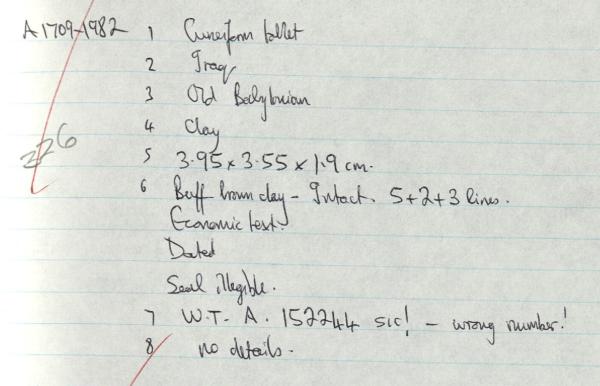 A1709-1982 1 Cuneiform tablet
2 Iraq
3 Old Babylonian
4 Clay
226
5 3.95 x 3.55 x 1.9 cm.
6 Buff brown clay - Intact. 5+2+3 lines.
Economic text.
Dated
Seal illegible.
7 W.T. A. 152244 sic! - wrong number!
8 no details.